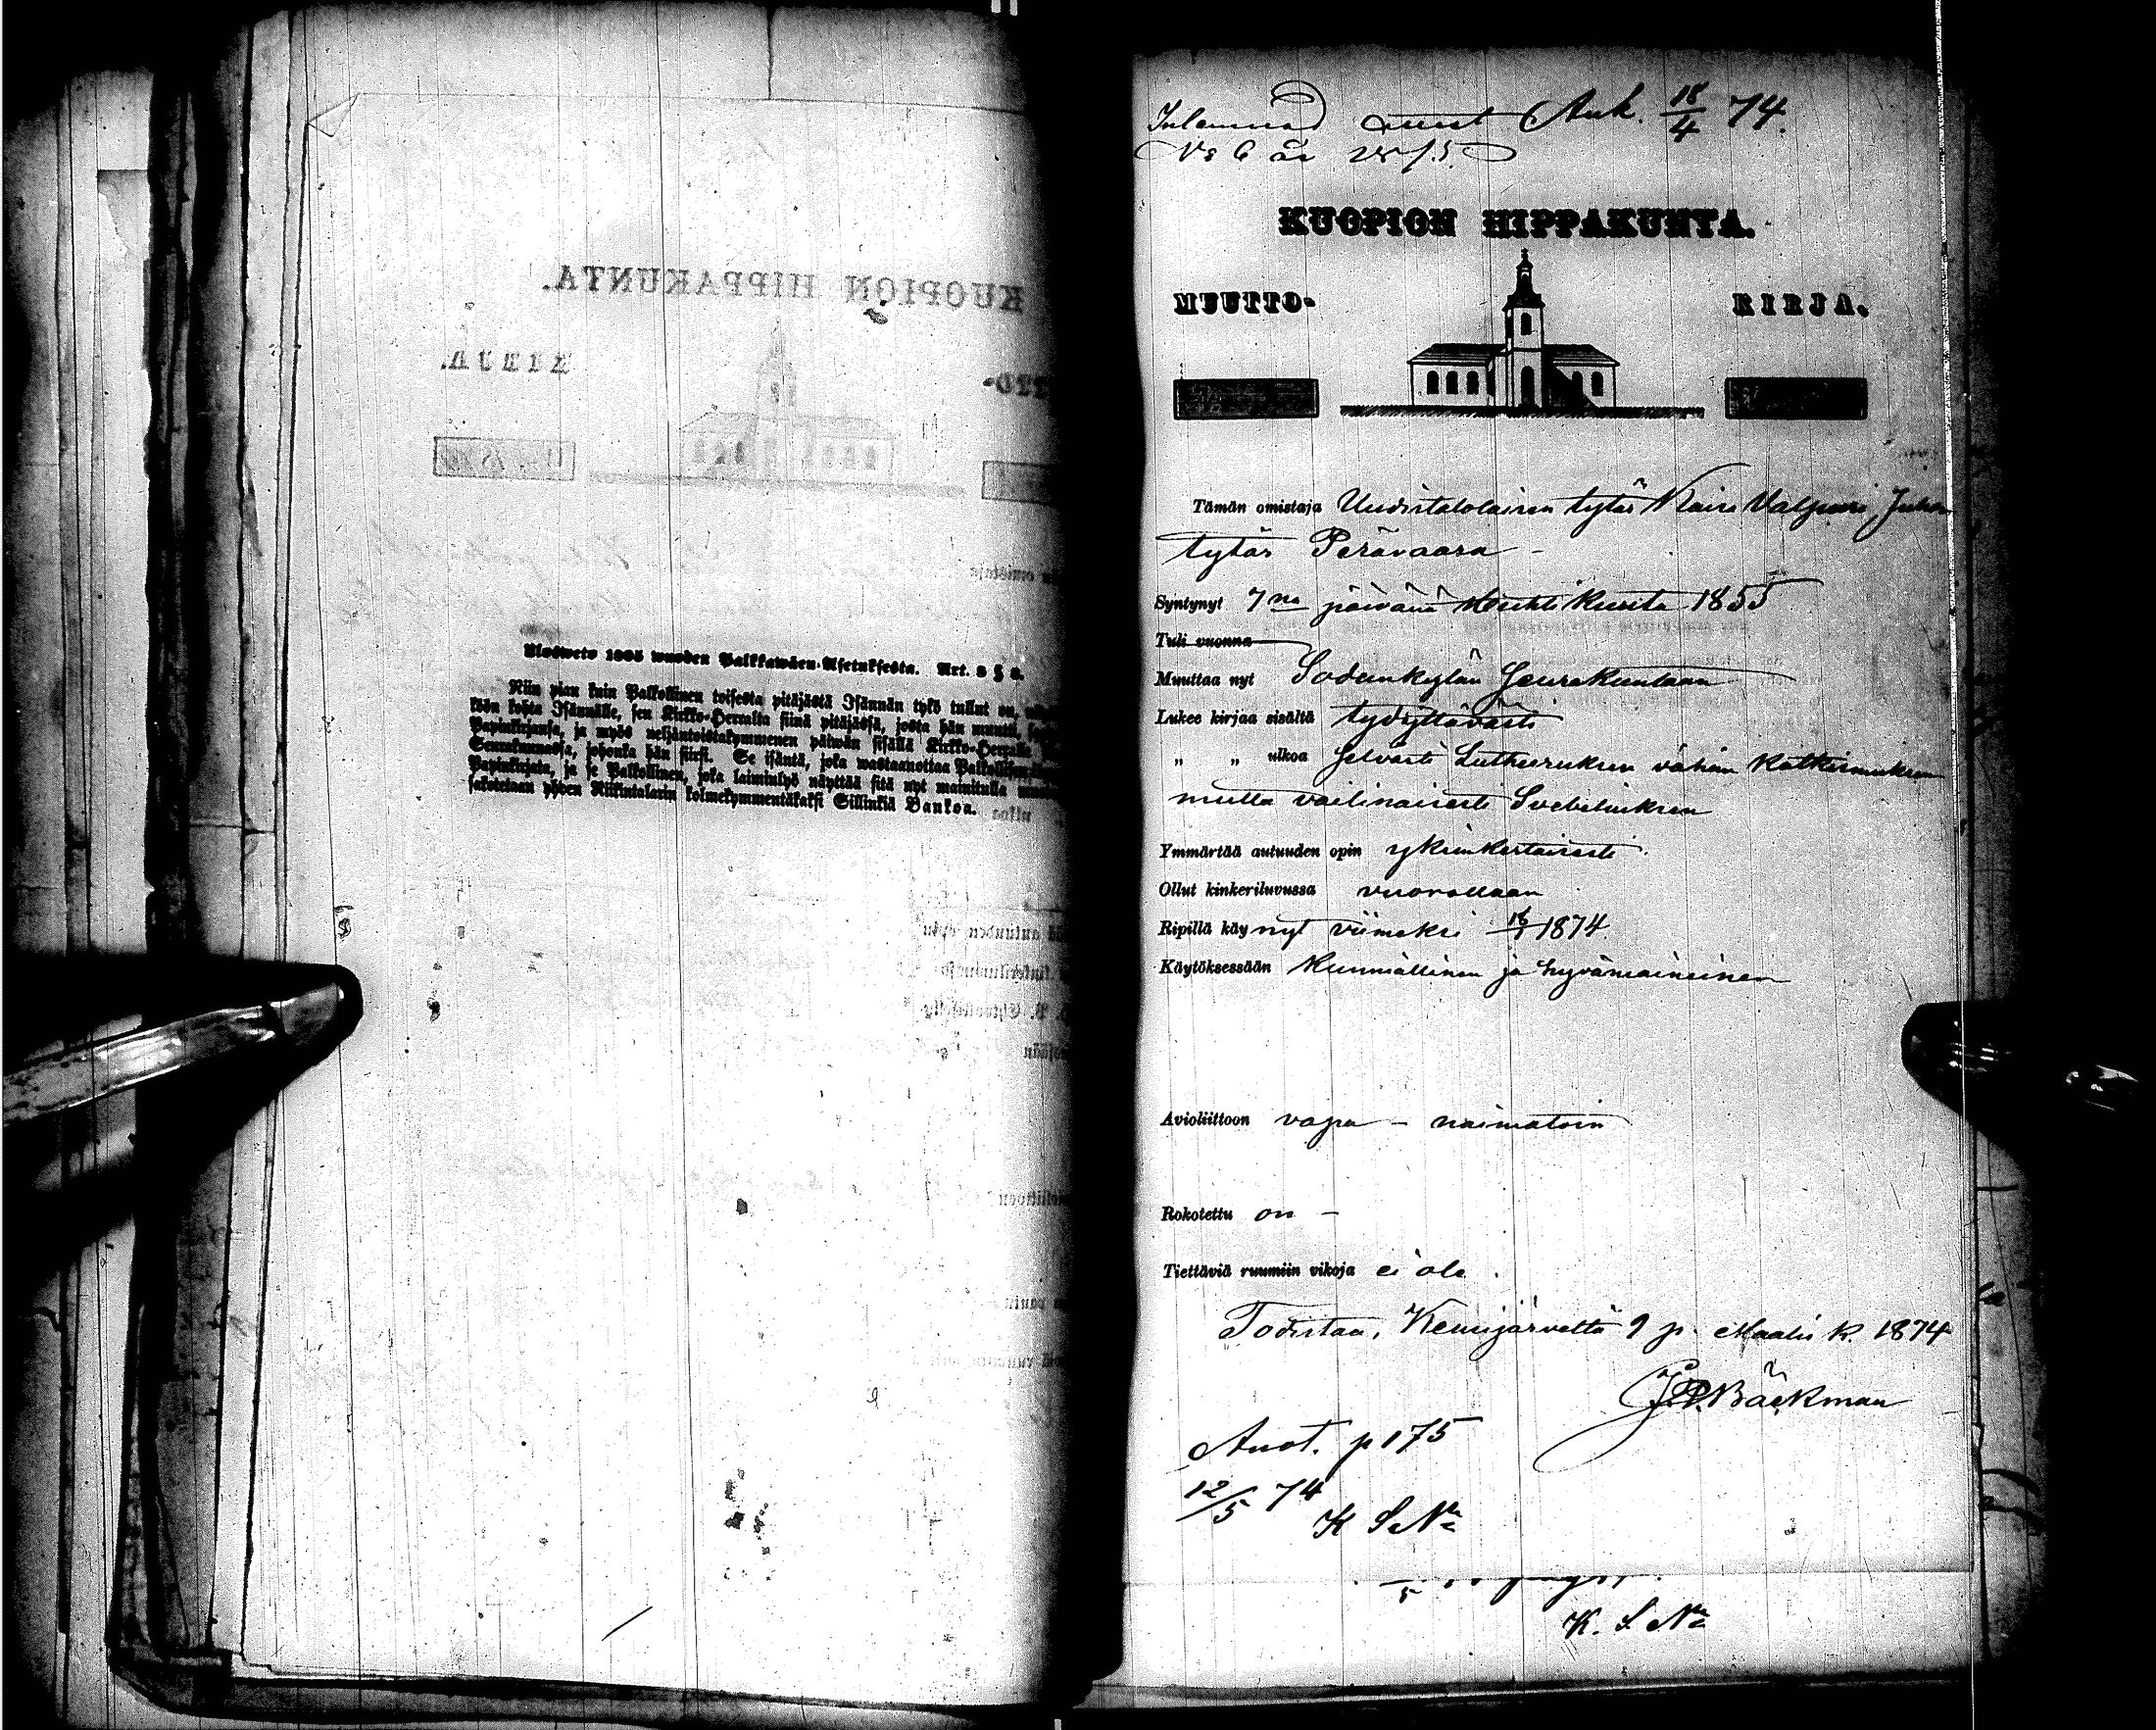 Ulosweto 1865 wuoden Palkkawäen-Asetuksesta. Art. 3 §
Niin pian kuin Palkollinen toisesta pitäjästä Isännän tykö tullut on,
köön kohta Isännälle, sen Kirkko-Herralta siinä pitäjässä, josta hän muutti,
Papinkirjansa, ja myös neljäntoistakymmenen päiwän sisällä Kirkko-Herralle
Seurakunnassa, johonka hän siirsi. Se isäntä, joka wastaanottaa Palkollisen
Papinkirjata, ja se Palkollinen, joka laiminlyö näyttää sitä nyt mainitulla
sakotetaan yhden Riikintalarin kolmekymmentäkaksi Sillinkiä Bankoa.
Ank. 18/4 74.
KUOPION HIPPAKUNTA.
MUUTTO-
KIRJA.
Tämän omistaja Uudistalolaisen tytär Kaisa Valpuri Juhon
tytär Perävaara -
Syntynyt 7na päivänä Huhtikuuta 1855
Tuli vuonna
Muuttaa nyt Sodankylän Seurakuntaan
Lukee kirjaa sisältä tydyttävästi
„ „ ulkoa Selvästi Lutheeruksen vähän Katkismuksen
mutta vaillinaisesti Svebeliuksen
Ymmärtää autuuden opin yksinkertaisesti
Ollut kinkeriluvussa vuorollaan
Ripillä käynyt viimeksi 1874
Käytöksessään Kunniallinen ja hyvämaineinen
Avioliittoon vapa - naimatoin
Rokotettu on -
Tiettäviä ruumiin vikoja ei ole.
Todistaa, Kemijärveltä 9 p. Maalis k. 1874
J. P. Bäckman
Anot. p 175
12/5 74
K S Nn
K. S Nn